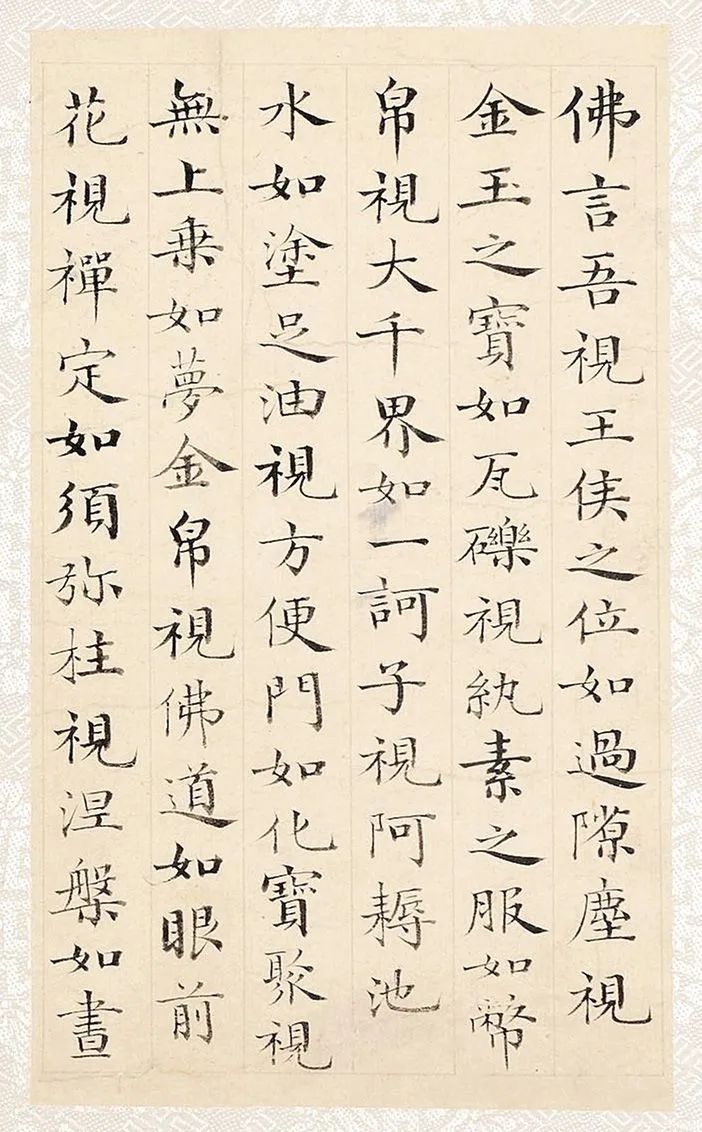 佛言吾視王侯之位如過隙塵視
金玉之寶如瓦礫視紈素之服如幣
帛視大千界如一訶子視阿耨池
水如塗足油視方便門如化寶聚視
無上乗如夢金帛視佛道如眼前
花視禪定如須弥柱視涅槃如晝